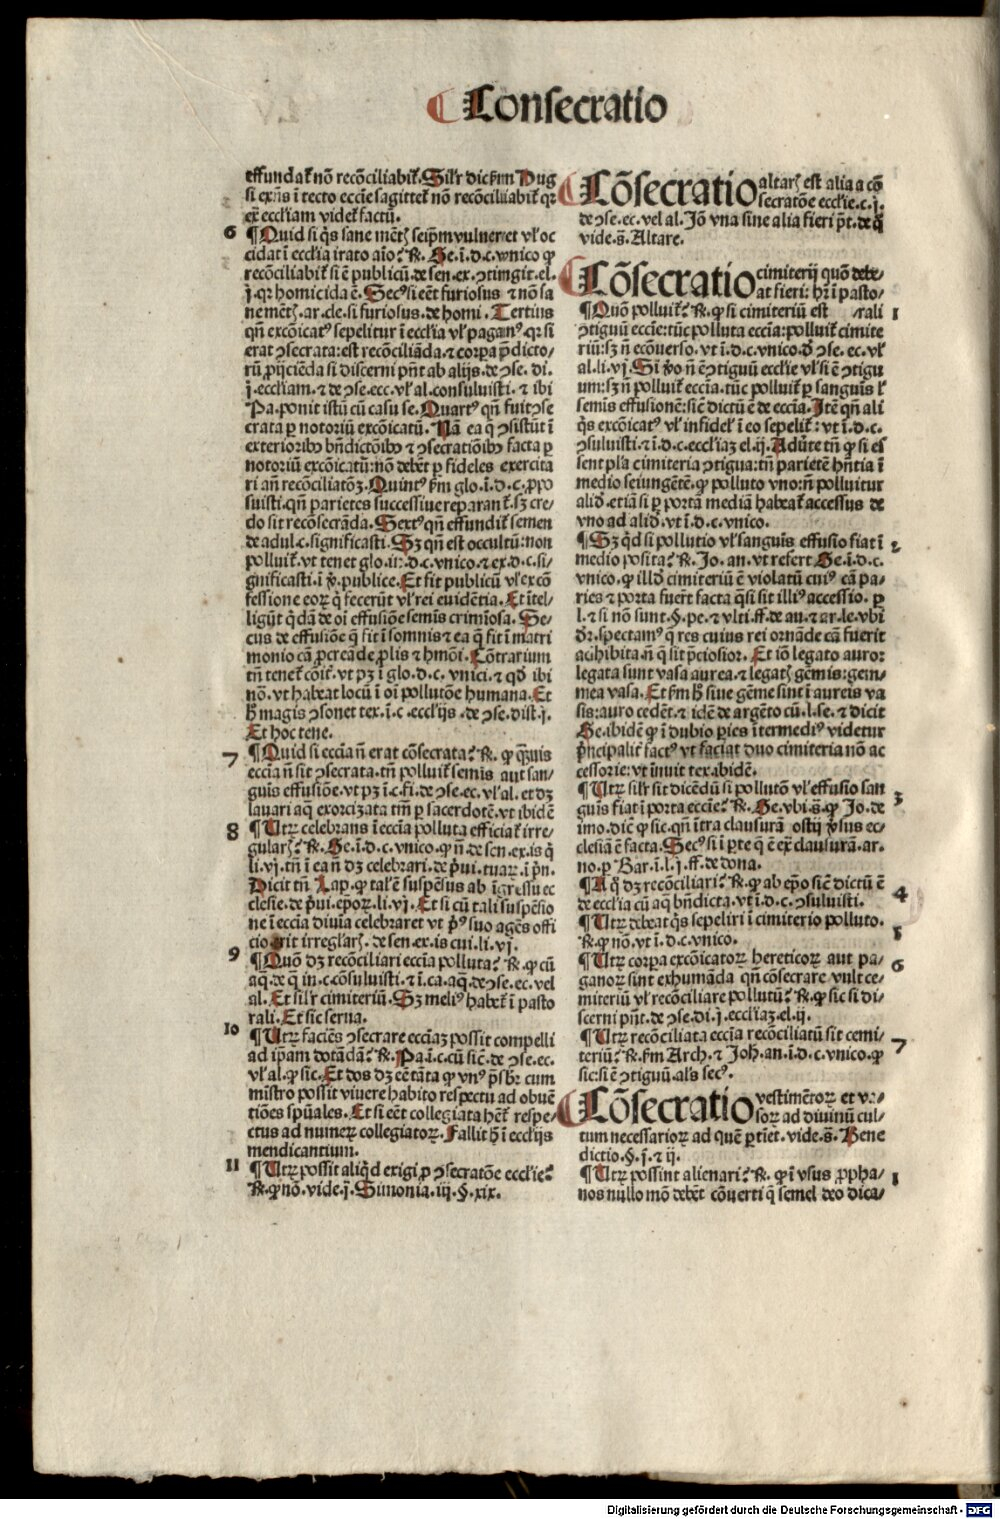 Consecratio
effundat̃ nõ recõciliabit̃. Silr̃ dicẽ Hug
si exñs ĩ tecto eccĩe sagittet̃ nõ recõciliabit̃ qr
ex̃ eccĩam videt̃ factũ.
6 ¶ Quid si q̃s sane mẽtꝭ seip̃m vulneret vl̓ oc
cidat ĩ ecclĩa irato aĩo? R̃. Ge. ĩ. d. c. vnico ꝙ
recõciliabit̃ si ẽ publicũ. de sen. ex. ↄtingit. el.
j. qr homicida ẽ. Secꝰ si eẽt furiosus ⁊ nõ sa
ne mẽtꝭ. ar. cle. si furiosus. de homi. Tertius
qñ excõicatꝰ sepelitur ĩ ecclĩa vl̓ paganꝰ. qr si
erat ↄsecrata: est recõciliãda. ⁊ corpa p̃dicto/
rũ ꝓijciẽda si discerni pñt ab alijs. de ↄse. di.
j. eccliam. ⁊ de ↄse. ecc. vl̓ al. consuluisti. ⁊ ibi
Pa. ponit istũ cũ casu se. Quartꝰ qñ fuit ↄse
crata ꝑ notoriũ excõicatũ. Nã ea q̃ ↄsistũt ĩ
exterioribꝰ bñdictõibꝰ ⁊ ↄsecratiõibꝰ facta ꝑ
notoriũ excõicatũ: nõ debẽt ꝑ fideles exercita
ri añ recõciliatõꝫ. Quintꝰ ẜm glo. ĩ. d. c. ꝓpo
suisti. qñ parietes successiue reparant̃. sꝫ cre/
do sit recõsecrãda. Sextꝰ qñ effundit̃ semen
de adul. c. significasti. Sꝫ qñ est occultũ: non
polluit̃. vt tenet glo. ii. d. c. vnico. ⁊ ex. d. c. si/
gnificasti. ĩ ꝟ. publice. Et fit publicũ vl̓ ex cõ
fessione eoꝝ q̃ fecerũt vl̓ rei euidẽtia. Et ĩtel/
ligũt q̃dã de oĩ effusiõe semĩs crimĩosa. Se/
cus de effusiõe q̃ fit ĩ somnis ⁊ ea q̃ fit ĩ matri
monio cã ꝓcreãde ꝓlis ⁊ hmõi. Cõtrarium
tñ tenet̃ cõit̃. vt pꝫ ĩ glo. d. c. vnici. ⁊ qd̃ ibi
nõ. vt habeat locũ ĩ oĩ pollutõe humana. Et
h̃ magis ↄsonet tex. ĩ. c. ecclijs. de ↄse. dist. j.
Et hoc tene.
7 ¶ Quid si eccĩa ñ erat cõsecrata? R̃. ꝙ q̃uis
eccĩa ñ sit ↄsecrata. tñ polluit̃ semĩs aut san/
guĩs effusiõe. vt pꝫ ĩ. c. fi. de ↄse. ec. vl̓ al. et dꝫ
lauari aq̃ exorcizata tm̃ ꝑ sacerdotẽ. vt ibidẽ
8 ¶ Utꝝ celebrans ĩ eccĩa polluta efficiat̃ irre/
gularꝭ? R̃. Ge. ĩ. d. c. vnico. ꝙ ñ. de sen. ex. is q̃
li. vj. tñ ĩ ea ñ dꝫ celebrari. de p̃ui. tuaꝝ. ĩ pñ.
Dicit tñ Lap. ꝙ tal̓ ẽ suspẽsus ab ĩgressu ec
clesie. de p̃ui. ep̃oꝝ. li. vj. Et si cũ tali suspẽsio
ne ĩ eccĩa diuĩa celebraret vt pꝰ suo agẽs offi
cio erit irregl̓arꝭ. de sen. ex. is cui. li. vj.
9 ¶ Quõ dꝫ recõciliari eccĩa polluta? R̃. ꝙ cũ
aq̃. de q̃ in. c. cõsuluisti. ⁊ ĩ. ca. aq̃. de ↄse. ec. vel
al. Et silr̃ cimiteriũ. Sꝫ meliꝰ habet̃ ĩ pasto
rali. Et sic serua.
10 ¶ Utꝝ faciẽs ↄsecrare eccĩaꝫ possit compelli
ad ip̃am dotãdã? R̃. Pa. ĩ. c. cũ sicẽ. de ↄse. ec.
vl̓ al. ꝙ sic. Et dos dꝫ eẽ tãta ꝙ vnꝰ p̃sbr̃ cum
mĩstro possit viuere habito respectu ad obuẽ
tiões spũales. Et si eẽt collegiata hẽt̃ respe/
ctus ad numeꝝ collegiatoꝝ. Fallit h̃ ĩ ecclijs
mendicantium.
11 ¶ Utꝝ possit aliq̃d exigi ꝓ ↄsecratõe ecclĩe?
R̃. ꝙ nõ. vide. j. Simonia. iij. §. xix.
Cõsecratio altarꝭ est alia a cõ
secratõe ecclĩe. c. j.
de ↄse. ec. vel al. Jõ vna sine alia fieri p̃t. de q̃
vide. s̃. Altare.
Cõsecratio cimiterij quõ debe/
at fieri: hr̃ ĩ pasto/
¶ Quõ polluit̃? R̃. ꝙ si cimiteriũ est rali 1
ↄtiguũ eccĩe: tũc polluta eccĩa: polluit̃ cimite
riũ: sꝫ ñ ecõuerso. vt ĩ. d. c. vnico. de ↄse. ec. vl̓
al. li. vj. Si ꝟo ñ ẽ ↄtiguũ ecclĩe vl̓ si ẽ ↄtigu
um: sꝫ ñ polluit̃ eccĩa. tũc polluit̃ ꝑ sanguĩs l̓
semĩs effusionẽ: sic̃ dictũ ẽ de eccĩa. Itẽ qñ ali
q̃s excõicatꝰ vl̓ infidel̓ ĩ eo sepelit̃: vt ĩ. d. c.
ↄsuluisti. ⁊ ĩ. d. c. eccĩaꝫ el. ij. Aduẽte tñ ꝙ si eẽ
sent pl̓a cimiteria ↄtigua: tñ parietẽ hñtia ĩ
medio seiungẽtẽ. ꝙ polluto vno: ñ polluitur
aliđ. etiã si ꝑ portã mediã habeat̃ accessus de
vno ad aliđ. vt ĩ. d. c. vnico.
¶ Sꝫ qd̃ si pollutio vl̓ sanguĩs effusio fiat ĩ 2
medio posita? R̃. Jo. an. vt refert Ge. ĩ. d. c.
vnico. ꝙ illđ cimiteriũ ẽ violatũ cuiꝰ cã pa/
ries ⁊ porta fuer̃t facta q̃si sit illiꝰ accessio. ꝑ
l. ⁊ si nõ sunt. §. pe. ⁊ vlti. ff. de au. ⁊ ar. le. vbi
dr̃. spectamꝰ q̃ res cuius rei ornãde cã fuerit
adhibita. ñ q̃ sit p̃ciosior. Et iõ legato auroꝝ
legata sunt vasa aurea. ⁊ legatꝭ gemĩs: gem/
mea vasa. Et ẜm h̃ siue gẽme sint ĩ aureis va
sis: auro cedẽt. ⁊ idẽ de argẽto cũ. l. se. ⁊ dicit
Ge. ibidẽ ꝙ ĩ dubio ꝑies ĩtermediꝰ videtur
p̃ncipalit̃ factꝰ vt faciat duo cimiteria nõ ac
cessorie: vt ĩnuit tex. abidẽ.
¶ Utꝝ silr̃ sit dicẽdũ si pollutõ vl̓ effusio san 3
guĩs fiat ĩ porta eccĩe? R̃. Ge. vbi. s̃. ꝙ Jo. de
imo. diẽ ꝙ sic. qñ ĩtra clausurã ostij ꝟsus ec/
clesiã ẽ facta. Secꝰ si ĩ ꝑte q̃ ẽ ex̃ clausurã. ar.
no. ꝑ Bar. ĩ. l. j. ff. de dona.
¶ A q̃ dꝫ recõciliari? R̃. ꝙ ab ep̃o sic̃ dictũ ẽ 4
de ecclĩa cũ aq̃ bñdicta. vt ĩ. d. c. ↄsuluisti.
¶ Utꝝ debeat q̃s sepeliri ĩ cimiterio polluto. 5
R̃. ꝙ nõ. vt ĩ. d. c. vnico.
¶ Utꝝ corpa excõicatoꝝ hereticoꝝ aut pa/ 6
ganoꝝ sint exhumãda qñ cõsecrare vult ce/
miteriũ vl̓ recõciliare pollutũ? R̃. ꝙ sic si di/
scerni pñt. de ↄse. di. j. eccĩaꝫ. el. ij.
¶ Utꝝ recõciliata eccĩa recõciliatũ sit cemi/ 7
teriũ? R̃. ẜm Arch. ⁊ Joh. an. ĩ. d. c. vnico. ꝙ
sic: si ẽ ↄtiguũ. als̃ secꝰ.
Cõsecratio vestimẽtoꝝ et va/
soꝝ ad diuinũ cul/
tum necessarioꝝ ad quẽ ꝑtĩet. vide. s̃. Bene
dictio. §. j. ⁊ ij.
¶ Utꝝ possint alienari? R̃. ꝙ ĩ vsus ꝓpha/ 1
nos nullo mõ debẽt cõuerti q̃ semel deo dica/
Digitalisierung gefördert durch die Deutsche Forschungsgemeinschaft - DFG